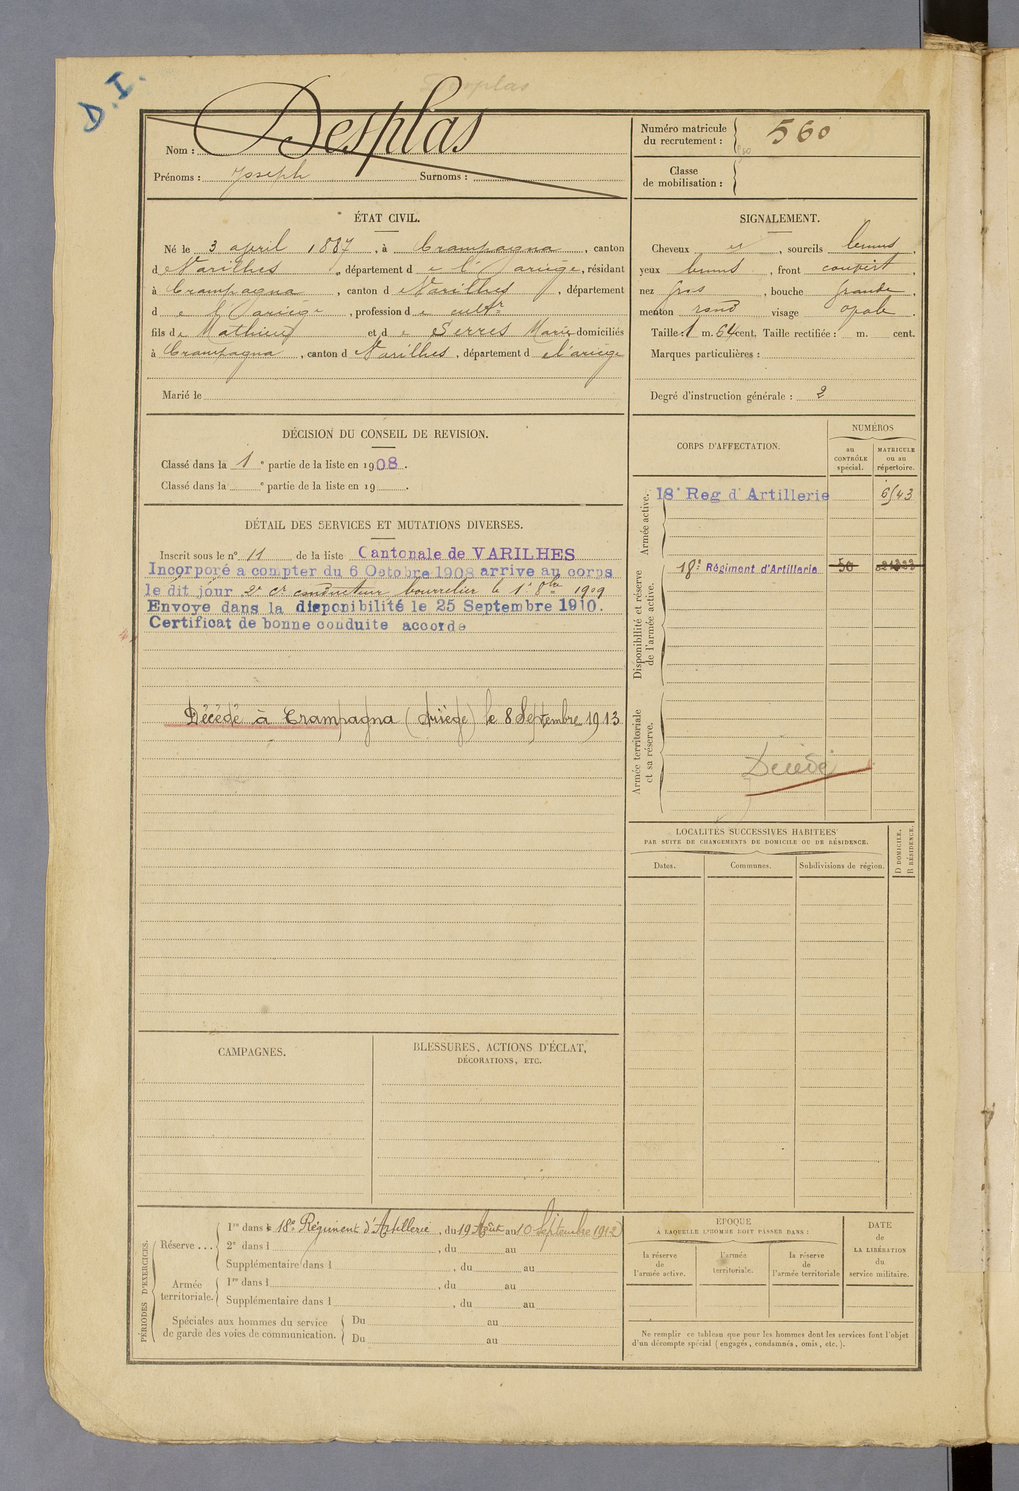 D. I.
Desplas
Nom : Desplas
Prénoms : Joseph Surnoms :
Numéro matricule du recrutement : 560
Classe de mobilisation :
ÉTAT CIVIL.
Né le 3 april 1887, à Crampagna, canton
d Varilhes, département d e l'Ariège, résidant
à Crampagna, canton d Varilhes, département
d e l'Ariège, profession d e cultr
fils de Mathieu et de Serres Marie domiciliés
à Crampagna, canton d Varilhes, département d e l'ariège
Marié le
SIGNALEMENT.
Cheveux et, sourcils bruns
yeux bruns, front couvert,
nez gros, bouche grande,
menton rond visage opale.
Taille : 1 m. 64 cent. Taille rectifiée : m. cent.
Marques particulières :
Degré d'instruction générale : 2
DÉCISION DU CONSEIL DE REVISION.
Classé dans la 1e partie de la liste en 1908.
Classé dans la e partie de la liste en 19 .
DÉTAIL DES SERVICES ET MUTATIONS DIVERSES.
Inscrit sous le n° 11 de la liste Cantonale de VARILHES
Incorporé a compter du 6 Octobre 1908 arrive au corps
le dit jour 2e cr conducteur bourrelier le 1er 8bre 1909
Envoye dans la disponibilité le 25 Septembre 1910.
Certificat de bonne conduite accorde
Décédé à Crampagna (Ariège) le 8 Septembre 1913
CORPS D'AFFECTATION.
NUMÉROS
au CONTRÔLE spécial.
MATRICULE ou au répertoire.
Armée active.
18e Reg d'Artillerie 6543
Disponibilité et réserve de l'armée active.
18e Régiment d'Artillerie 50
Armée territoriale et sa réserve.
Décédé
LOCALITÉS SUCCESSIVES HABITÉES
PAR SUITE DE CHANGEMENTS DE DOMICILE OU DE RÉSIDENCE.
Dates. Communes. Subdivisions de région.
D DOMICILE.
R RÉSIDENCE.
CAMPAGNES.
BLESSURES, ACTIONS D'ÉCLAT,
DÉCORATIONS, ETC.
PÉRIODES D'EXERCICES.
Réserve ...
1re dans le 18e Régiment d'Artillerie, du 19 Août au 10 Septembre 1912
2e dans l , du au
Supplémentaire dans l , du au
Armée territoriale.
1re dans l , du au
Supplémentaire dans l , du au
Spéciales aux hommes du service de garde des voies de communication.
Du au
Du au
EPOQUE
À LAQUELLE L'HOMME DOIT PASSER DANS :
la réserve de l'armée active.
l'armée territoriale.
la réserve de l'armée territoriale
DATE de LA LIBÉRATION du service militaire.
Ne remplir ce tableau que pour les hommes dont les services font l'objet
d'un décompte spécial (engagés, condamnés, omis, etc.).